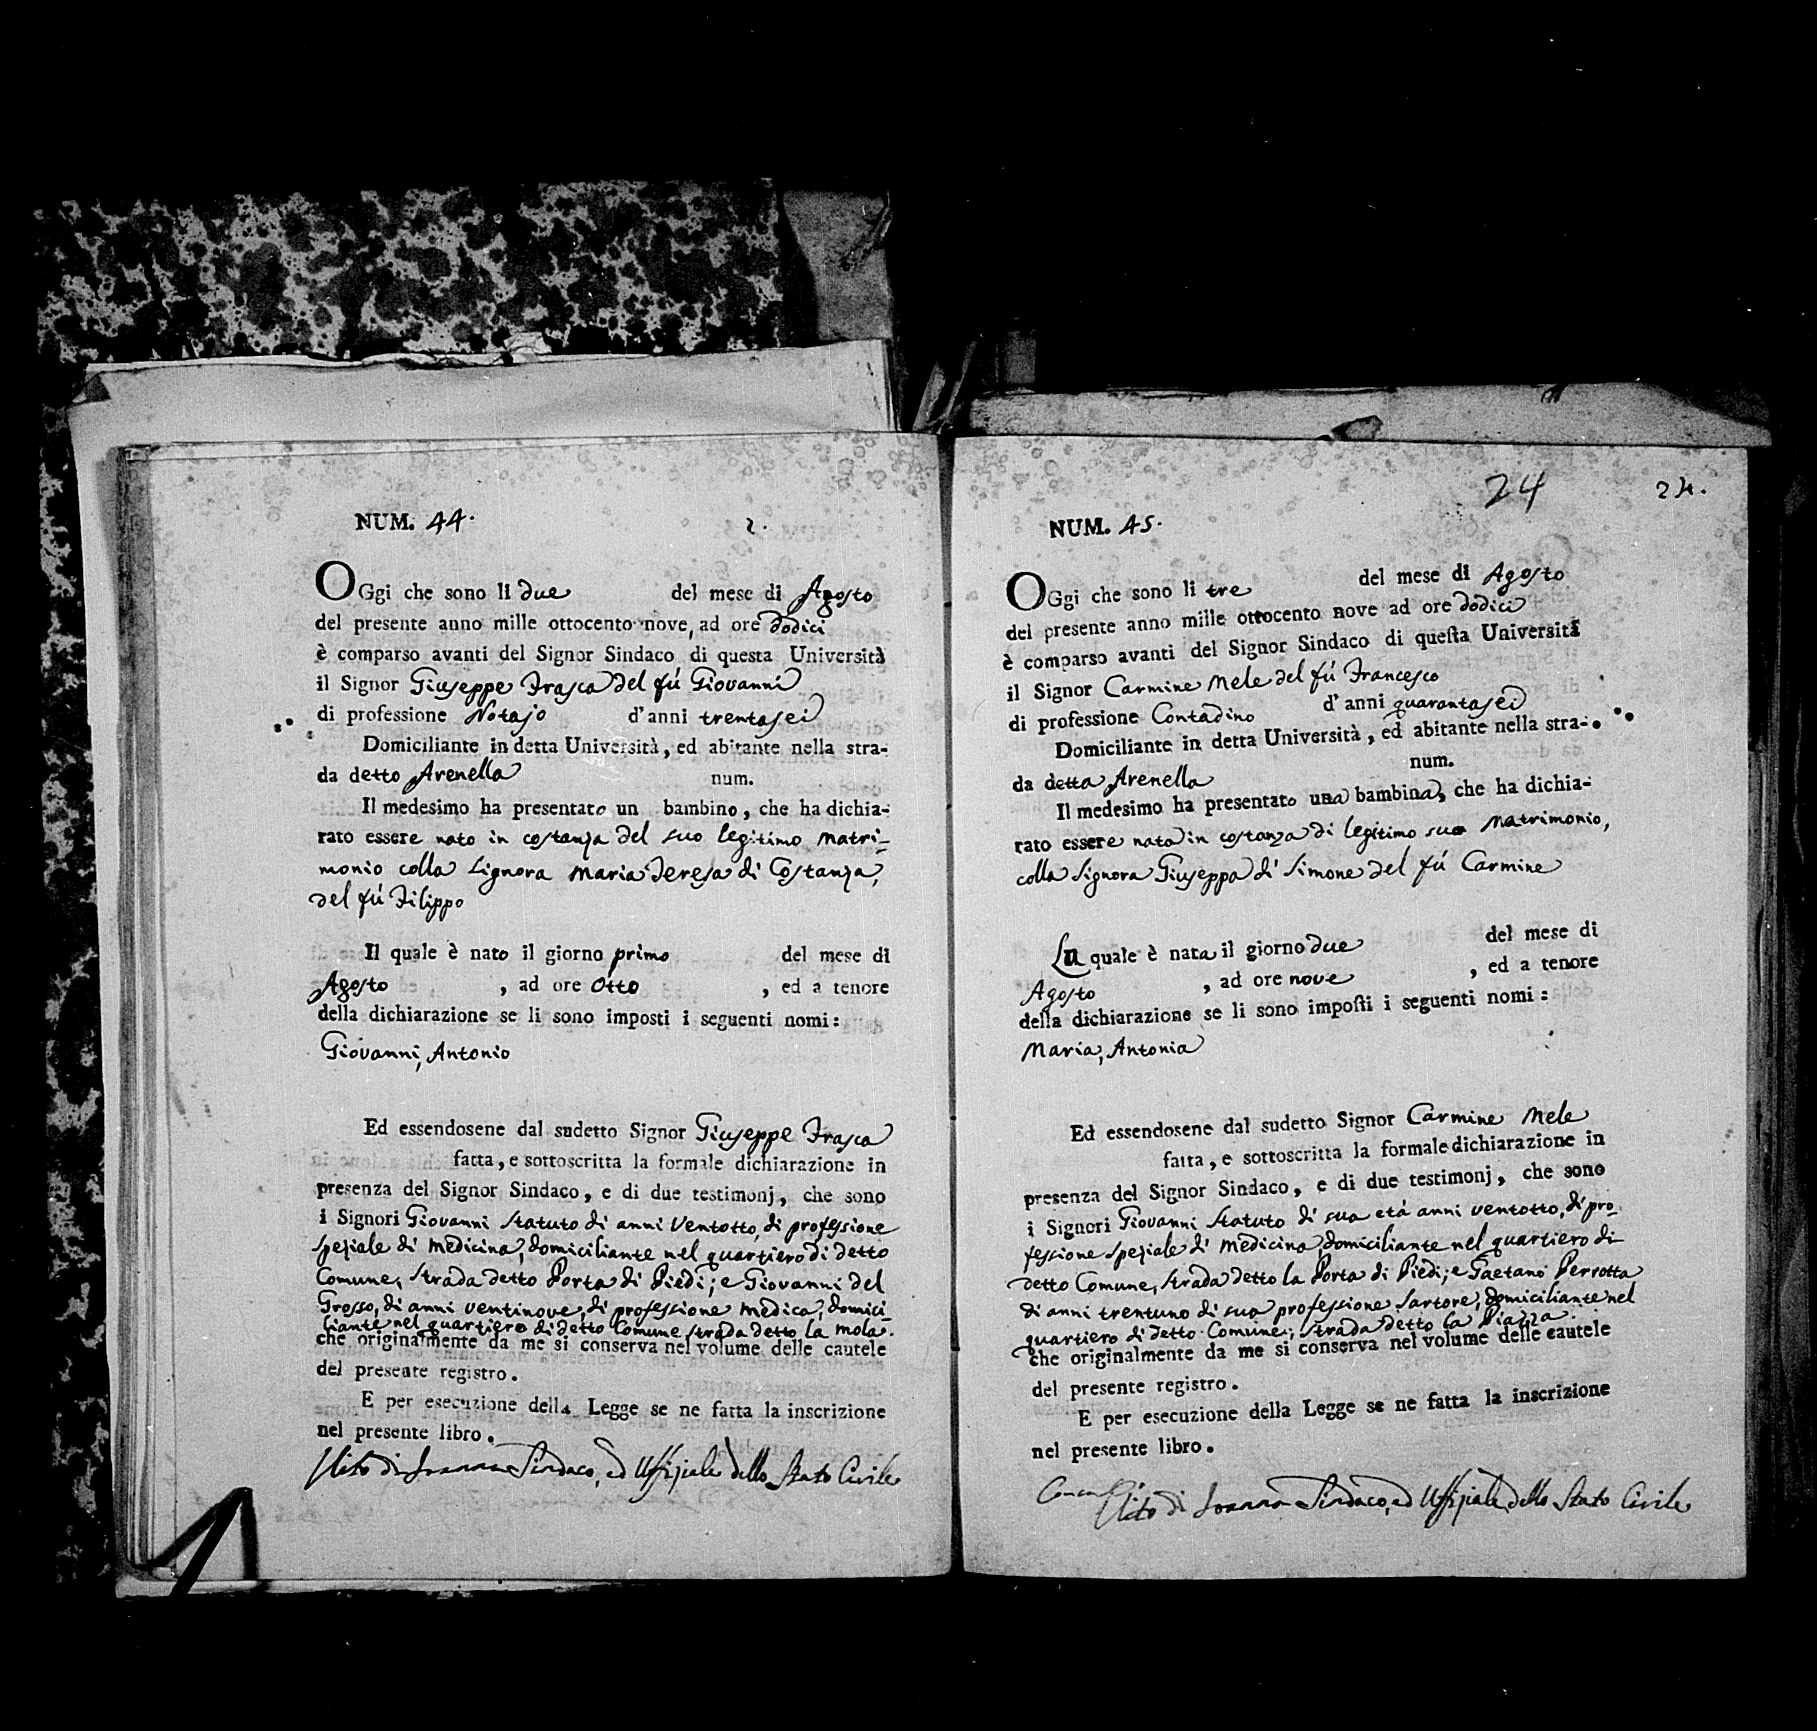 NUM. 44.
2.
OGgi che sono li due del mese di Agosto
del presente anno mille ottocento nove, ad ore dodici
è comparso avanti del Signor Sindaco di questa Università
il Signor Giuseppe Frasca del fú Giovanni
di professione Notajo d'anni trentasei
Domiciliante in detta Università, ed abitante nella stra-
da detto Arenella num.
Il medesimo ha presentato un bambino, che ha dichia-
rato essere nato in costanza del suo legitimo Matri-
monio colla Signora Maria Teresa di Costanza,
del fú Filippo
Il quale è nato il giorno primo del mese di
Agosto , ad ore Otto , ed a tenore
della dichiarazione se li sono imposti i seguenti nomi:
Giovanni, Antonio
Ed essendosene dal sudetto Signor Giuseppe Frasca
fatta, e sottoscritta la formale dichiarazione in
presenza del Signor Sindaco, e di due testimonj, che sono
i Signori Giovanni Statuto di anni Ventotto, di professione
Speziale di Medicina, domiciliante nel quartiero di detto
Comune, Strada detto Porta di Piedi; e Giovanni del
Grosso, di anni ventinove, di professione Medica, domici-
liante nel quartiero di detto Comune strada detto la Mola.
che originalmente da me si conserva nel volume delle cautele
del presente registro.
E per esecuzione della Legge se ne fatta la inscrizione
nel presente libro.
Vito di Sindaco, ed Uffiziale dello Stato Civile
24 24.
NUM. 45.
OGgi che sono li tre del mese di Agosto
del presente anno mille ottocento nove ad ore dodici
è comparso avanti del Signor Sindaco di questa Università
il Signor Carmine Mele del fú Francesco
di professione Contadino d'anni quarantasei
Domiciliante in detta Università, ed abitante nella stra-
da detta Arenella num.
Il medesimo ha presentato una bambina, che ha dichia-
rato essere nata in costanza di legitimo suo Matrimonio,
colla Signora Giuseppa di Simone del fú Carmine
La quale è nata il giorno due del mese di
Agosto , ad ore nove , ed a tenore
della dichiarazione se li sono imposti i seguenti nomi:
Maria, Antonia
Ed essendosene dal sudetto Signor Carmine Mele
fatta, e sottoscritta la formale dichiarazione in
presenza del Signor Sindaco, e di due testimonj, che sono
i Signori Giovanni Statuto di sua etá anni ventotto, di pro-
fessione Speziale di Medicina domiciliante nel quartiero di
detto Comune, Strada detto la Porta di Piedi; e Gaetano Perrotta
di anni trentuno di sua professione Sartore, domiciliante nel
quartiero di detto Comune; Strada detto la Piazza.
che originalmente da me si conserva nel volume delle cautele
del presente registro.
E per esecuzione della Legge se ne fatta la inscrizione
nel presente libro.
Vito di Sindaco, ed Uffiziale dello Stato Civile